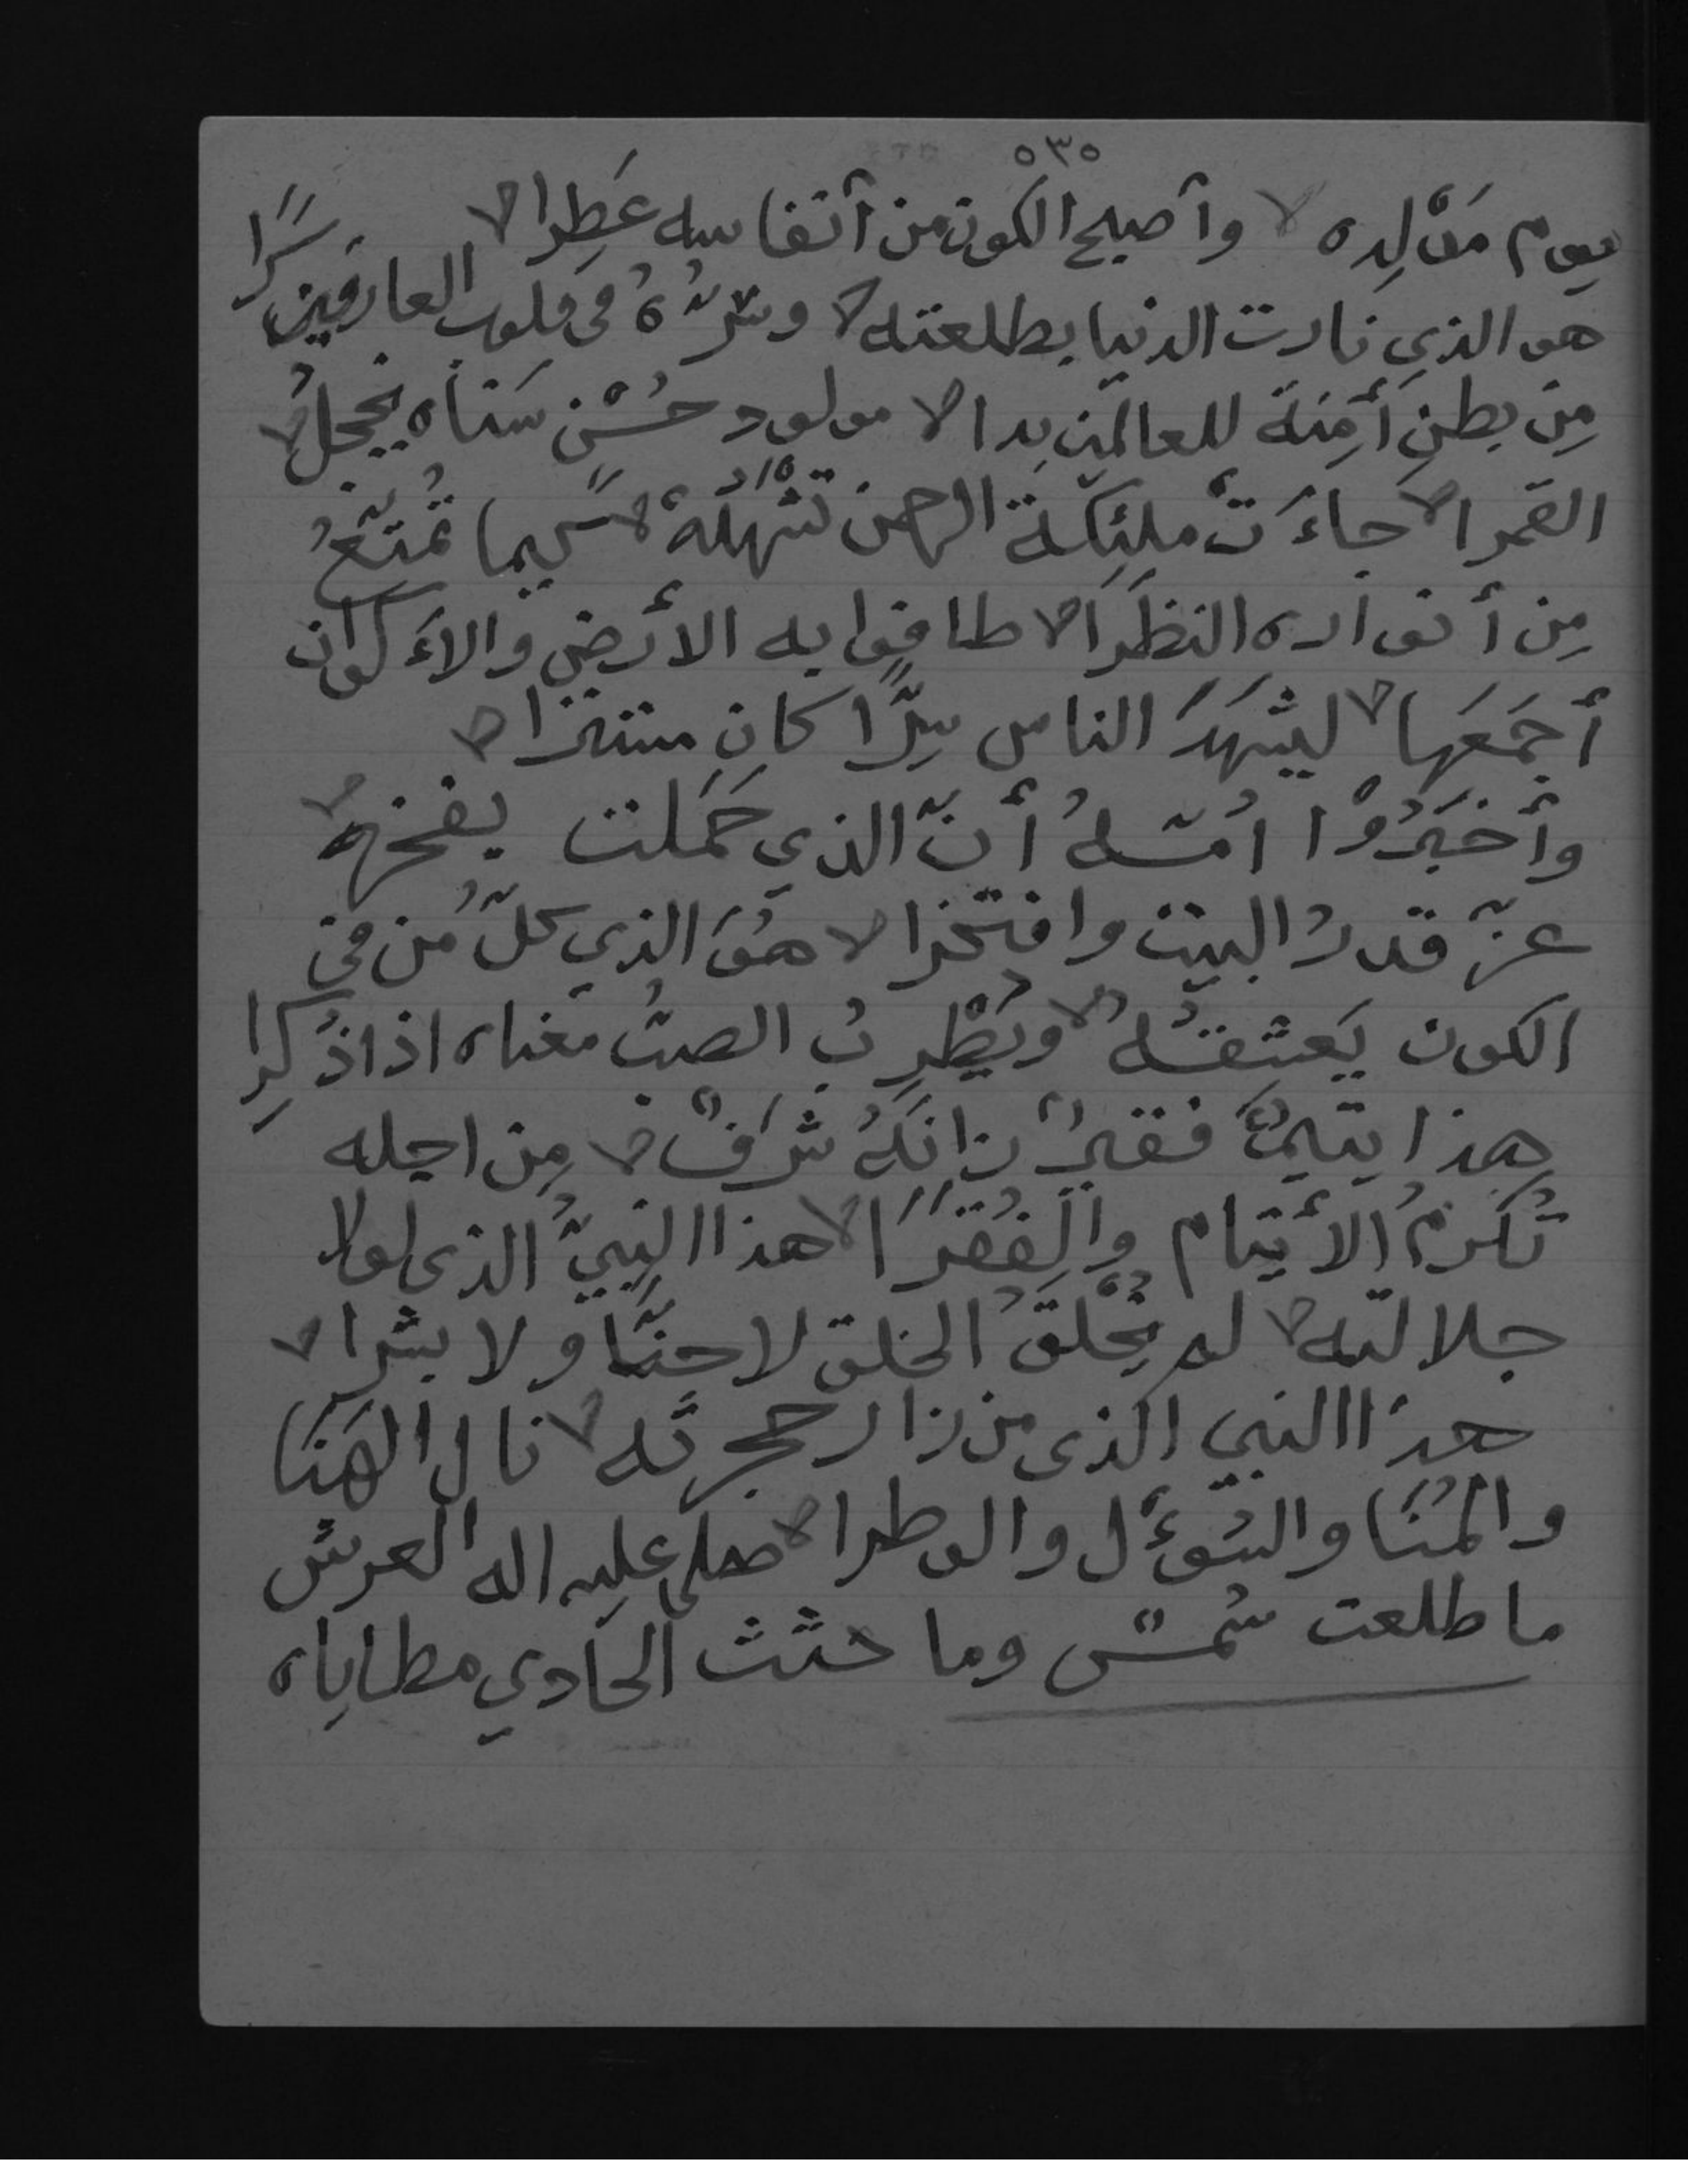 ٥٣٥
يوم مَوْلِده وأصبح الكون من أنفاسه عَطِرا
هو الذي نارت الدنيا بطلعته وسِرُّهُ في قلوب العارفين سَرًا
مِن بطنِ أَمِنَة للعالمين بدا مولود حُسْن سَناه يُخجلُ
القمرا جاءَتْ ملئِكة الرحمن تشهدُهُ كيما تُمتّعُ
مِن أنواره النظَرَا طافوا به الأرض والأكوان
أجمَعَها ليشهَدَ الناس سِرًّا كان مستترا
وأخبَرُوْا اُمّهُ أنّ الذي حَمَلت بفخره
عزّ قدرُ البيت وافتخرا هُوَ الذي كلّ مُن في
الكون يَعشقهُ ويُطْرِبُ الصبُّ مَغناه اذا ذُكِرا
هذا يتيمٌ فقيرٌ زانَهُ شرَفٌ مِن اجله
تُكرمُ الأيتام والفُقَرَا هذا النبِيُّ الذي لولا
جلالته لم يُخْلَق الخلق لا جنًّا ولا بشرا
هذا النبي الذي من زار حجرته نال الهَنَا
والمُنَا والسُؤل والوطرا صلى عليه اله العرش
ما طلعت شمسٌ وما حثث الحادي مطاياه